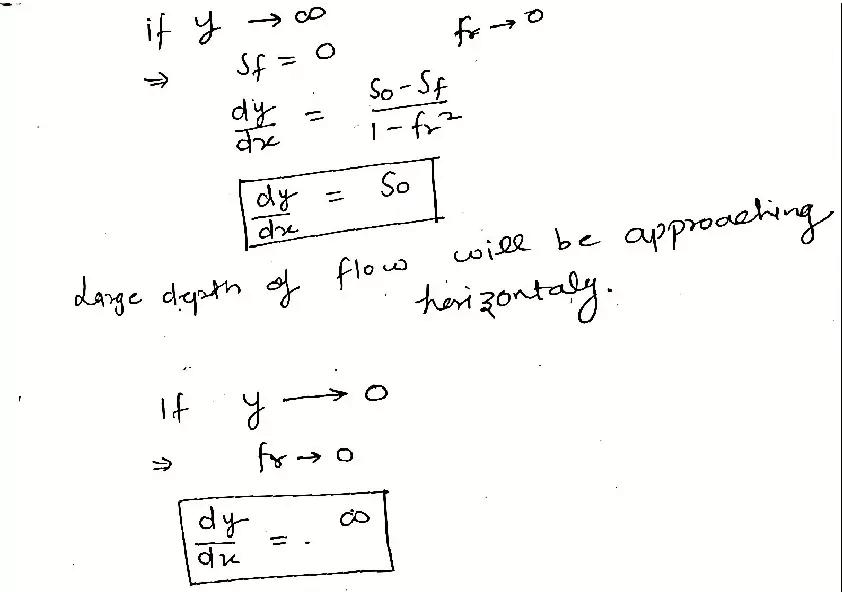 if y → ∞ fr → 0
⇒ Sf = 0
dy/dx = So - Sf / 1 - fr²
dy/dx = So
Large depth of flow will be approaching
horizontaly.
If y → 0
⇒ fr → 0
dy/dx = . ∞